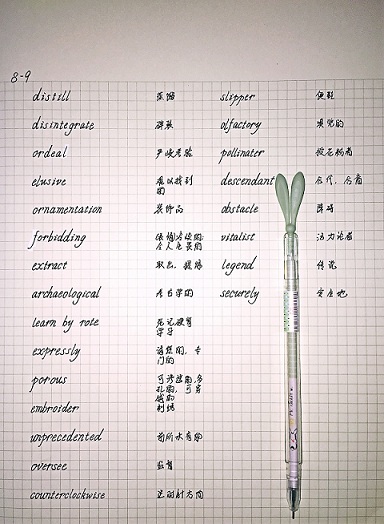 8-9
distill 蒸馏 slipper 便鞋
disintegrate 碎裂 olfactory 嗅觉的
ordeal 严峻考验 pollinater 授花粉者
elusive 难以找到的 descendant 后代,后裔
ornamentation 装饰品 obstacle 障碍
forbidding 令人生畏的 vitalist 活力论者
extract 取出,提炼 legend 传说
archaeological 考古学的 securely 安全地
learn by rote 死记硬背学习
expressly 清楚的,专门的
porous 可渗透的,多孔的,
embroider 刺绣
unprecedented 前所未有的
oversee 监督
counterclockwise 逆时针方向